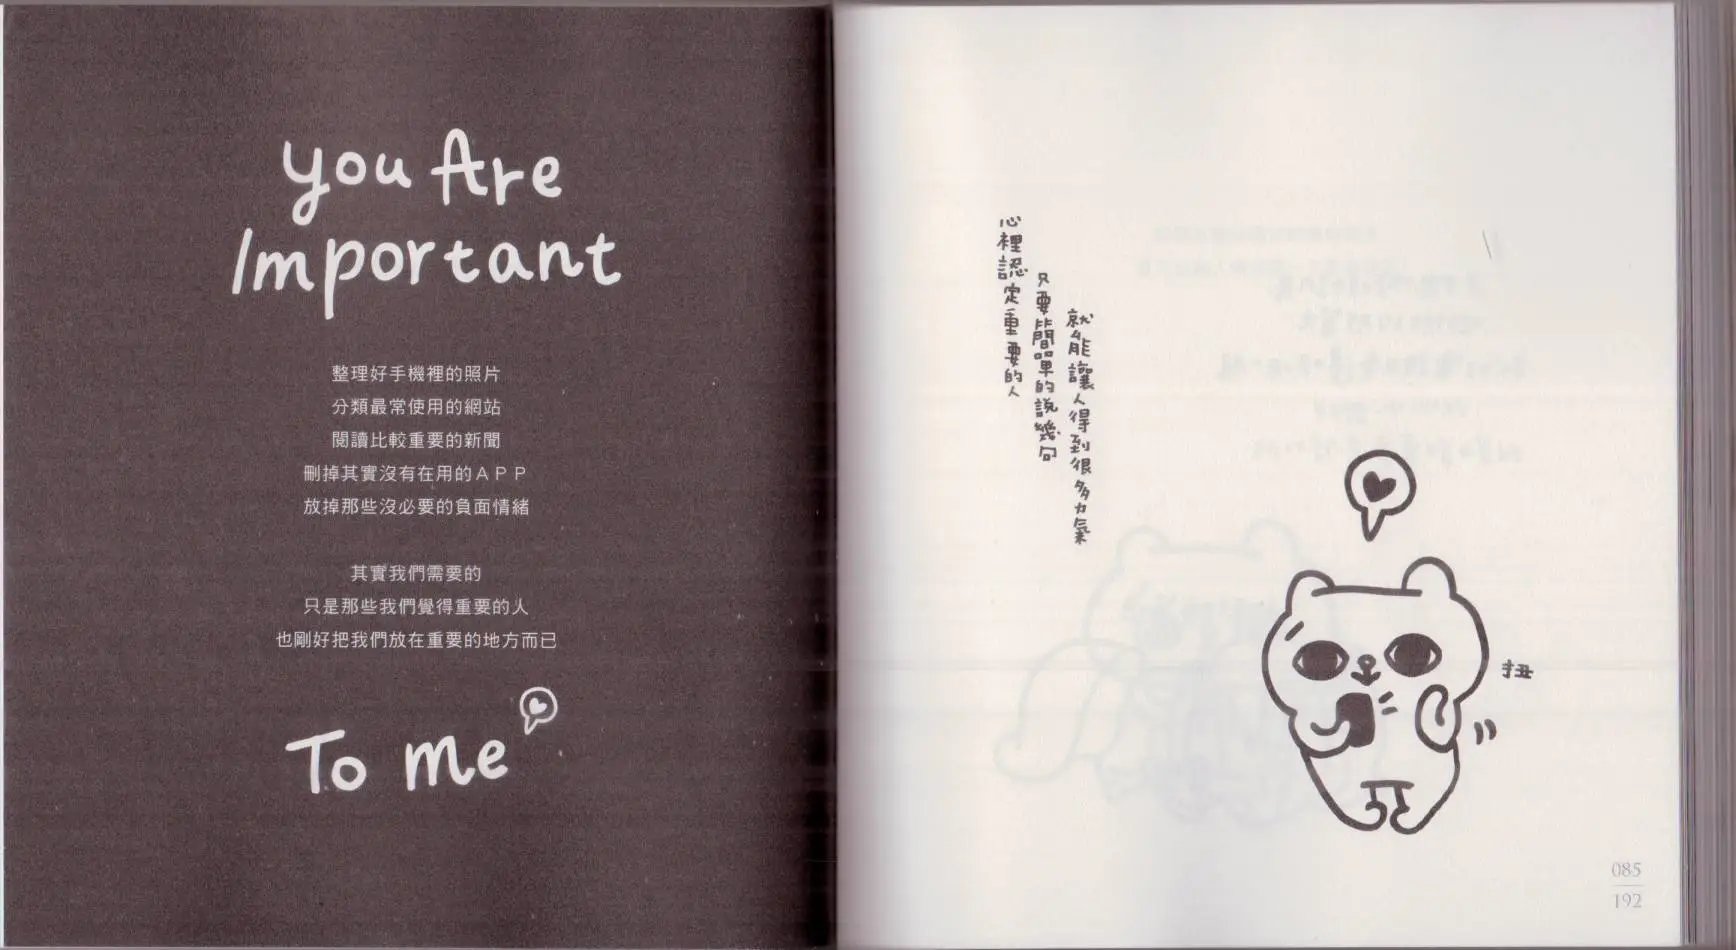 you Are
Important
整理好手機裡的照片
分類最常使用的網站
閱讀比較重要的新聞
刪掉其實沒有在用的APP
放掉那些沒必要的負面情緒
其實我們需要的
只是那些我們覺得重要的人
也剛好把我們放在重要的地方而已
To me
心裡認定重要的人
只要簡單的說幾句
就能讓人得到很多力氣
扭
085
192